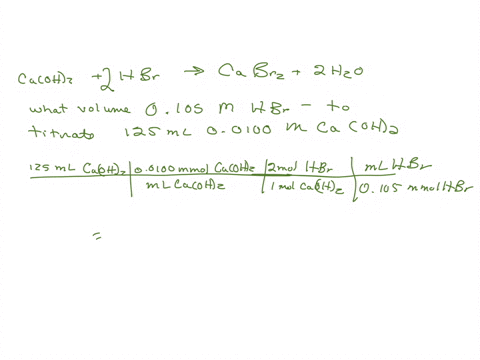 Ca(OH)₂ + 2HBr → CaBr₂ + 2H₂O
what volume 0.105 M HBr - to
titrate 125 mL 0.0100 M Ca(OH)₂
125 mL Ca(OH)₂ | 0.0100 mmol Ca(OH)₂ | 2mol HBr | mL HBr
mL Ca(OH)₂ | 1 mol Ca(OH)₂ | 0.105 mmol HBr
=